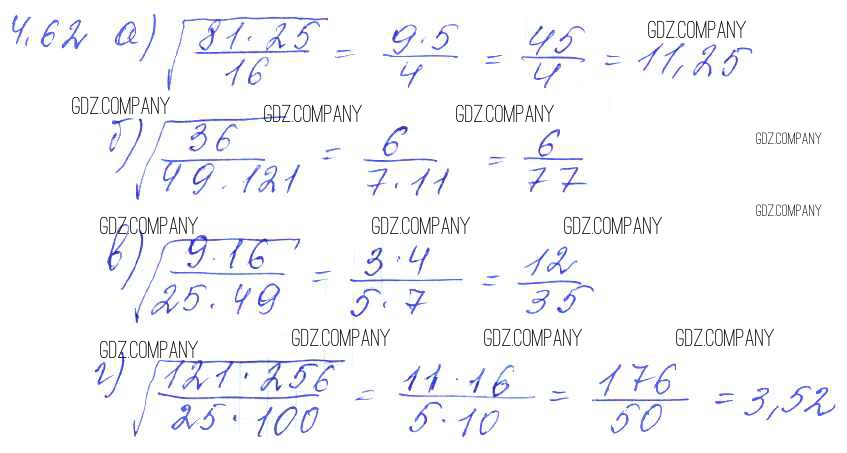 4.62 а) √(81·25/16) = 9·5/4 = 45/4 = 11,25
GDZ.COMPANY
GDZ.COMPANY GDZ.COMPANY GDZ.COMPANY
б) √(36/(49·121)) = 6/(7·11) = 6/77
GDZ.COMPANY
GDZ.COMPANY
GDZ.COMPANY GDZ.COMPANY GDZ.COMPANY
в) √(9·16/(25·49)) = 3·4/(5·7) = 12/35
GDZ.COMPANY GDZ.COMPANY GDZ.COMPANY GDZ.COMPANY
г) √(121·256/(25·100)) = 11·16/(5·10) = 176/50 = 3,52